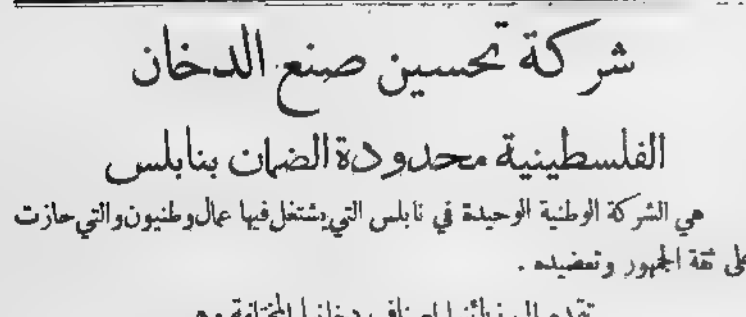 شركة تحسين صنع الدخان
الفلسطينية محدودة الضمان بنابلس
هي الشركة الوطنية الوحيدة في نابلس التي يشتغل فيها عمال وطنيون والتي حازت
على ثقة الجمهور وتعضيده .
تقدم الى زبائنها اصناف دخانها المختلفة وهي